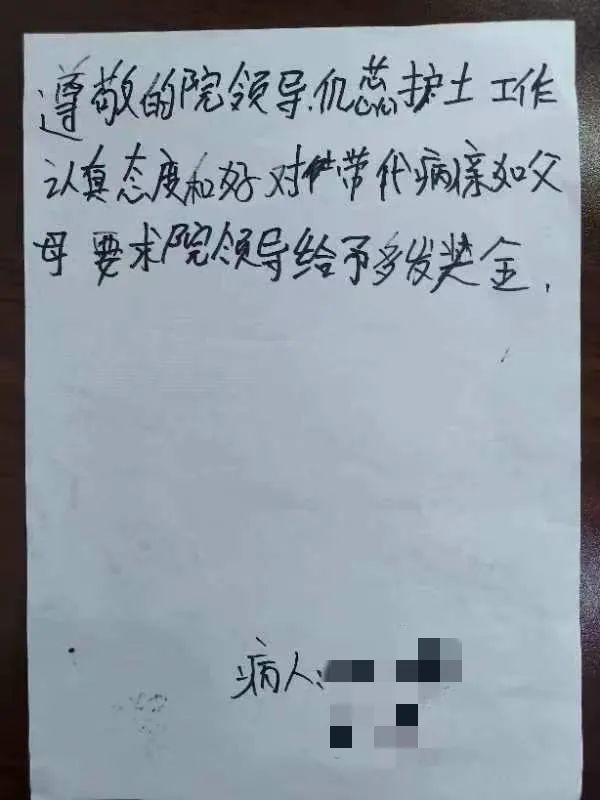 遵敬的院领导.仉蕊护士工作
认真态度和好对带代病亲如父
母要求院领导给予多发奖金.
病人: